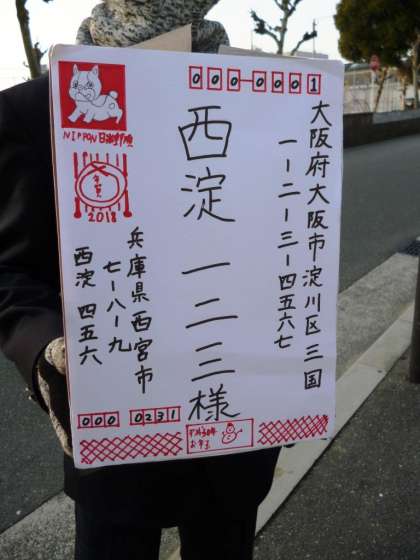 000-0001
大阪府大阪市淀川区三国
一-二-三-四五六七
西淀 一二三様
NIPPON
2018
兵庫県西宮市
七-八-九
西淀 四五六
000 0231
平成30年
お年玉